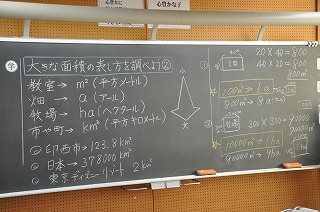 心豊かな子
学 大きな面積の表し方を調べよう②
教室→ m² (平方メートル)
畑 → a (アール)
牧場→ ha (ヘクタール)
市や町→ km² (平方キロメートル)
印西市→123.8km²
日本→378000km²
東京ディズニーリゾート 2km²
小
大
①
畑
20×40=800
800m²
100m²=1a
800m²=8a
②
牧場
300×300=90000
10000m²=1ha
90000m²=9ha